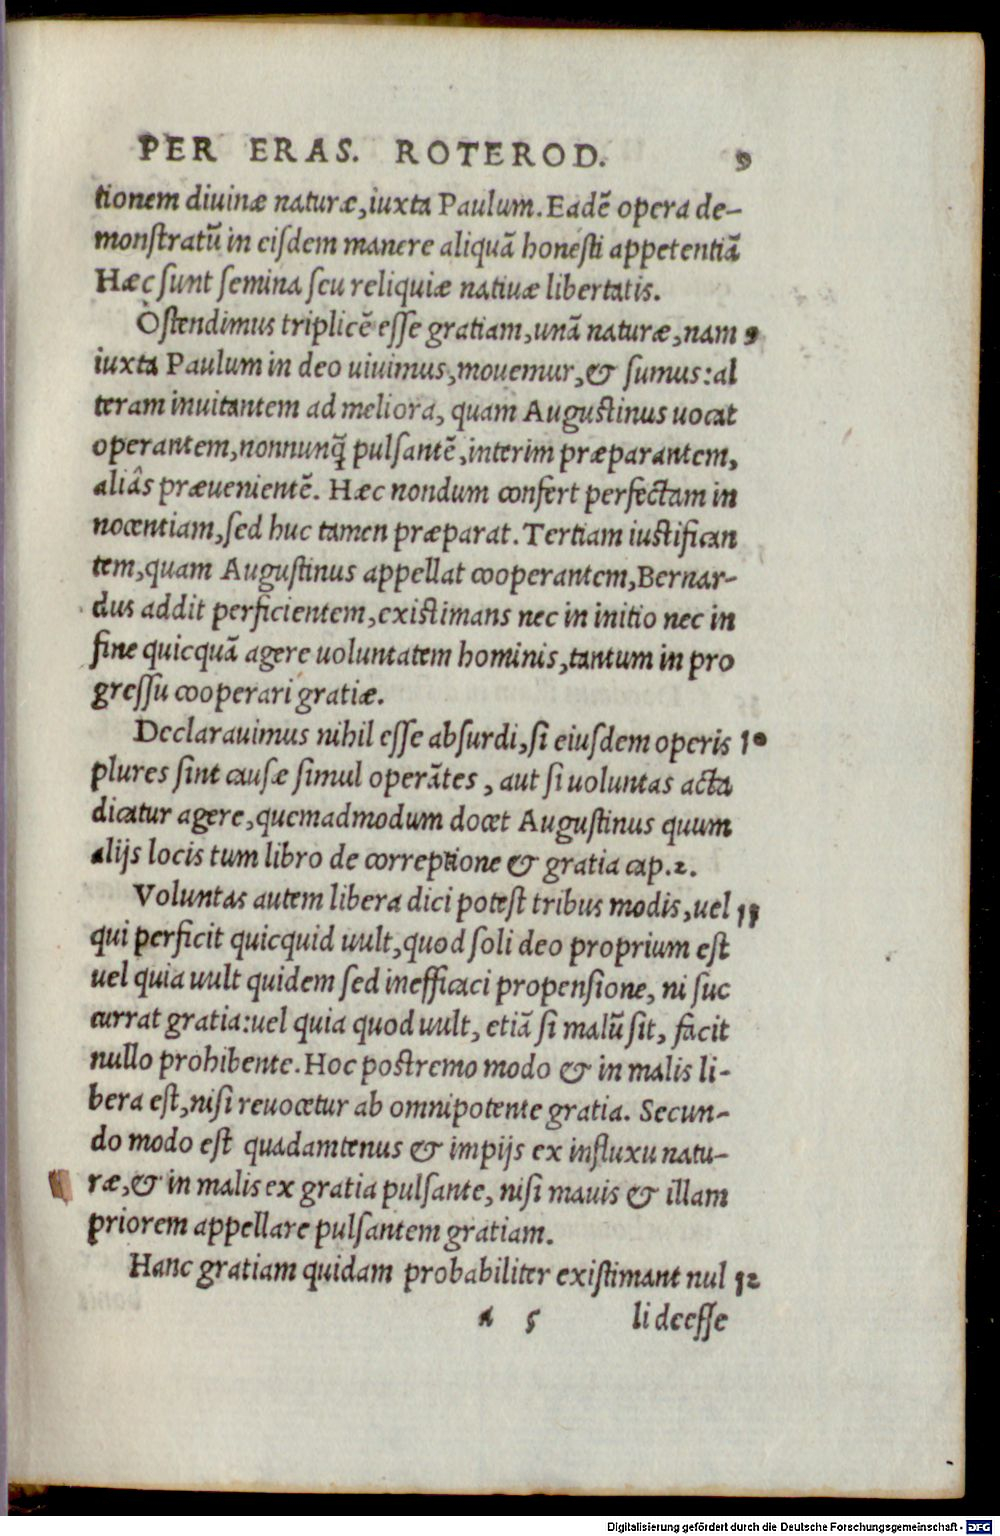 PER ERAS. ROTEROD. 9
tionem diuinæ naturæ, iuxta Paulum. Eadẽ opera de-
monſtratũ in eiſdem manere aliquã honeſti appetentiã
Hæc ſunt ſemina ſeu reliquiæ natiuæ libertatis.
Oſtendimus triplicẽ eſſe gratiam, unã naturæ, nam 9
iuxta Paulum in deo uiuimus, mouemur, & ſumus: al
teram inuitantem ad meliora, quam Auguſtinus uocat
operantem, nonnunq̃ pulſantẽ, interim præparantem,
aliâs præuenientẽ. Hæc nondum confert perfectam in
nocentiam, ſed huc tamen præparat. Tertiam iuſtifican
tem, quam Auguſtinus appellat cooperantem, Bernar-
dus addit perficientem, exiſtimans nec in initio nec in
fine quicquã agere uoluntatem hominis, tantum in pro
greſſu cooperari gratiæ.
Declarauimus nihil eſſe abſurdi, ſi eiuſdem operis 10
plures ſint cauſæ ſimul operãtes, aut ſi uoluntas acta
dicatur agere, quemadmodum docet Auguſtinus quum
alijs locis tum libro de correptione & gratia cap.2.
Voluntas autem libera dici poteſt tribus modis, uel 11
qui perficit quicquid uult, quod ſoli deo proprium eſt
uel quia uult quidem ſed inefficaci propenſione, ni ſuc
currat gratia: uel quia quod uult, etiã ſi malũ ſit, facit
nullo prohibente. Hoc poſtremo modo & in malis li-
bera eſt, niſi reuocetur ab omnipotente gratia. Secun-
do modo eſt quadamtenus & impijs ex influxu natu-
ræ, & in malis ex gratia pulſante, niſi mauis & illam
priorem appellare pulſantem gratiam.
Hanc gratiam quidam probabiliter exiſtimant nul 12
a 5 li deeſſe
Digitalisierung gefördert durch die Deutsche Forschungsgemeinschaft - DFG